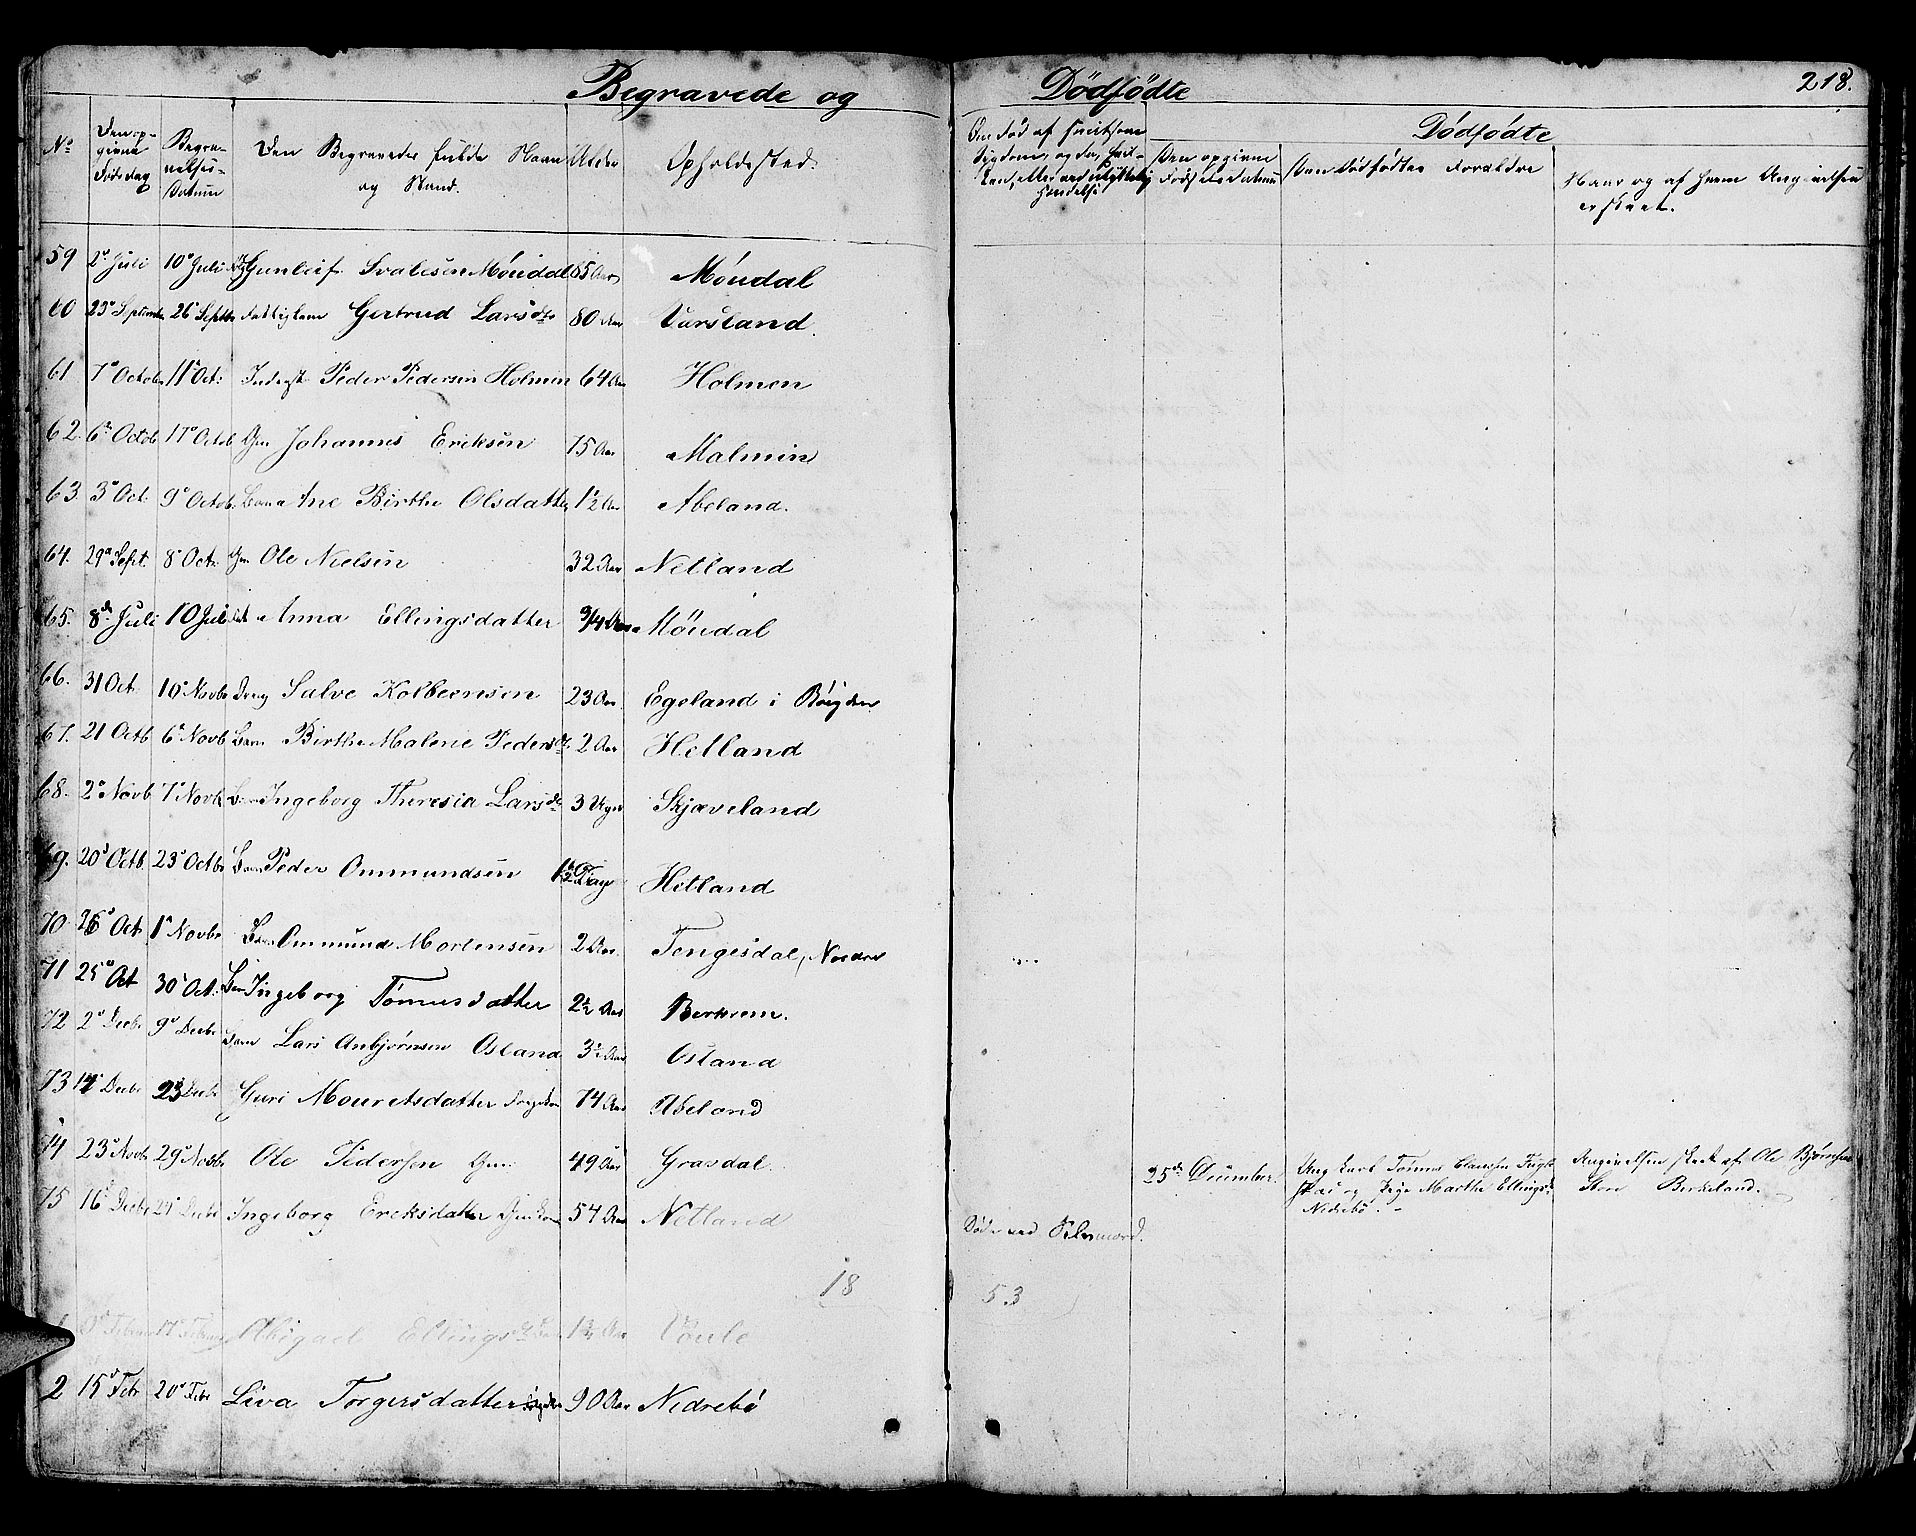 Begravede og Dødfødte 218.
No Den opgivne Dødsdag Begravelses-Datum Den Begravedes fulde Navn og Stand. Alder Opholdssted. Dødfødte
Den opgivne Fødselsdatum Den Dødfødtes Forældre Naar og af hvem Angivelsen er skeet.
59 2 Juli 10 Juli Gunleif Svalesen Møudal 85 Aar Møudal
60 23 September 26 Septbr Gertrud Larsdtr 80 Aar Versland.
61 7 Octobr 11 Oct: Inderst Peder Pedersen Holmen 64 Aar Holmen
62. 6 Octob 17 Octob Gm Johannes Eriksen 75 Aar Malmin
63. 3 Oct. 9 Octob. Barn Ane Birthe Olsdatter 1½ Aar Abeland.
64. 29 Sept. 8 Oct. Gm Ole Nielsen 32 Aar Netland
65. 8de Juli 10 Juli Anna Ellingsdatter 3/4 Aar Møudal
66. 31 Oct. 10 Novbr Dreng Salve Kolbeensen 23 Aar Egeland i Bøigden
67. 21 Octb 6 Novb Barn Birthe Malene Pedersdt. 2 Aar Helland
68. 2 Novb 7 Novb Barn Ingeborg Theresia Larsdt 3 Uger Skjæveland
69. 20 Octb. 23 Octbr Barn Peder Ommundsen ½ Dag Hetland
70 26 Oct 1 Novbr Barn Ommund Mortensen 2 Aar. Tengesdal, Nordre
71 25 Oct 30 Oct: Barn Ingeborg Tønnesdatter 2½ Aar Berkrem.
72 2 Decbr 9 Decbr Barn Lars Anbjørnsen Osland 3½ Aar Osland
73 14 Decbr 23 Decbr Guri Mouritsdatter 74 Aar Abeland
74 23 Novbr 29 Novbr Ole Pedersen Gm 49 Aar Grasdal.
25de December. Ung karl Tønnes Clausen og Pige Marthe Ellingsd. Nedrebø. Angivelsen skeet af Ole Bjørnsen Store Berkeland.
75 16 Decbr 21 Decbr Ingeborg Eriksdatter 54 Aar Netland Døde ved Selvmord.
18 53
Abigael Ellingsdt Barn 1½ Aar Voule
2 15 Febr 20 Febr Siva Torgersdatter 90 Aar Nedrebø